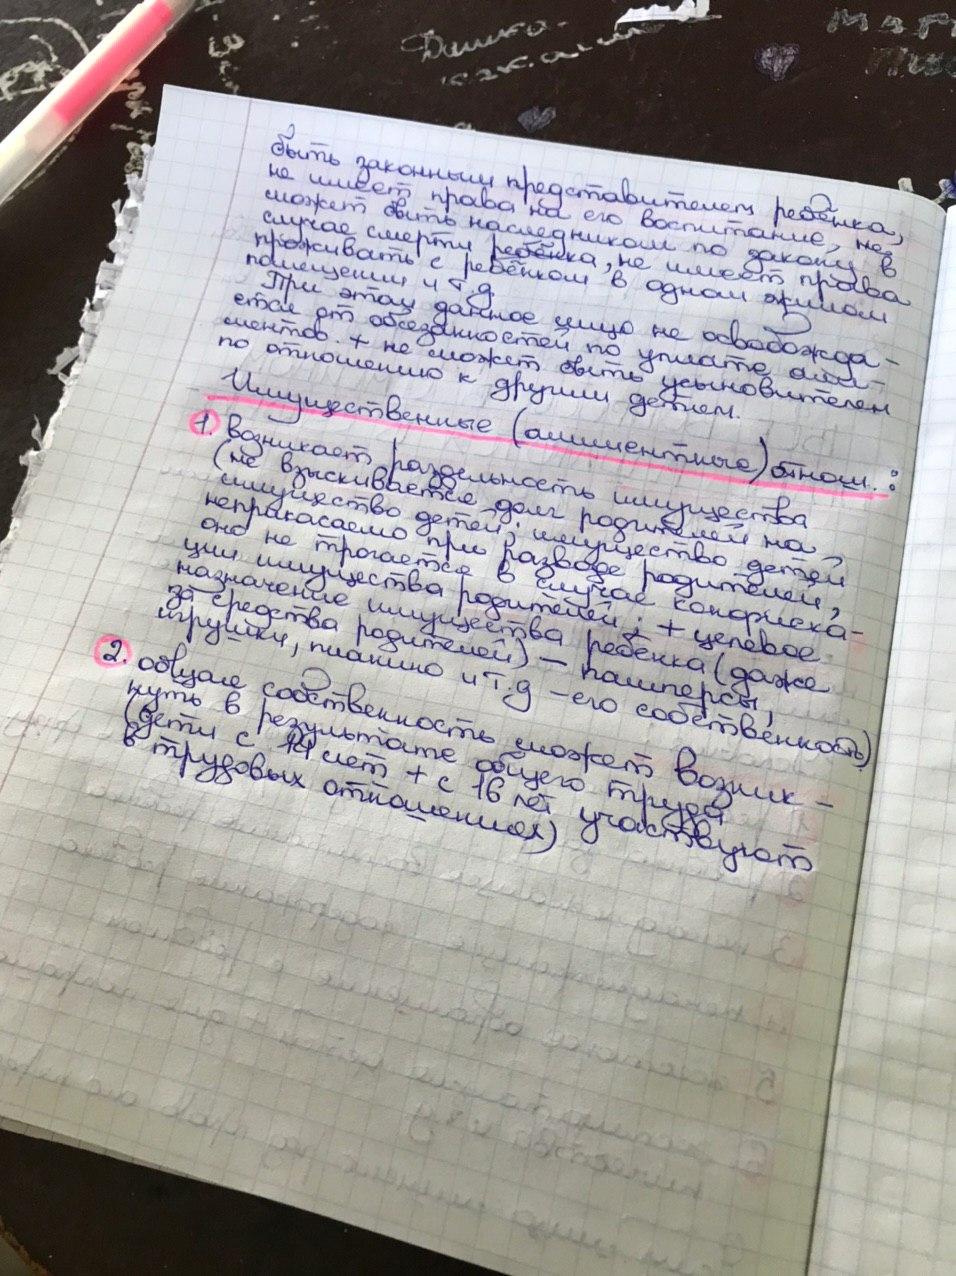 Данко
быть законным представителем ребёнка,
не имеет права на его воспитание, не
может быть наследником по закону в
случае смерти ребёнка, не имеет права
проживать с ребёнком в одном жилом
помещении и т.д
При этом данное лицо не освобожда-
ется от обязанностей по уплате али-
ментов. + не может быть усыновителем
по отношению к другим детям.
Имущественные (алиментные) отнош.:
1. возникает раздельность имущества
(не взыскивается долг родителей на
имущество детей; имущество детей
неприкасаемо при разводе родителей,
оно не трогается в случае конфиска-
ции имущества родителей; + целевое
назначение имущества ребёнка (даже
за средства родителей) – памперсы,
игрушки, пианино и т.д – его собственность)
2. общая собственность может возник-
нуть в результате общего труда
(дети с 14 лет + с 16 лет участвуют
в трудовых отношениях)